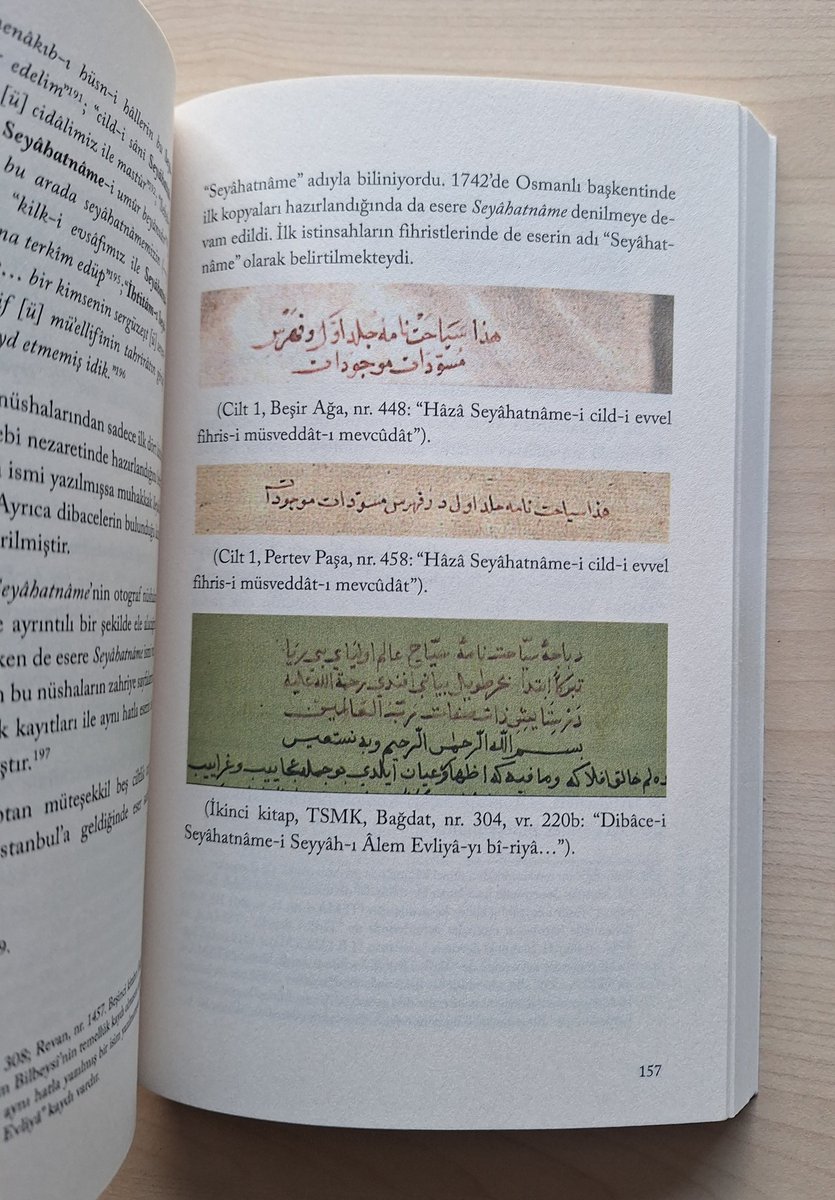 enâkıb-ı hüsn-i hâllerin bu
edelim"191; "cild-i sâni
[ü] cidâlimiz ile mastûr"
Seyâhatnâme-i umûr
bu arada seyâhatnâmemizin
"kilk-i evsâfımız ile
na terkîm edüp"195; "İhtitâm-ı
e… bir kimsenin sergüzeşt [ü]
if [ü] mü'ellifinin tahrirâtın
yd etmemiş idik."196
nüshalarından sadece ilk dört
ebi nezaretinde hazırlandığını
ismi yazılmışsa muhakkak
Ayrıca dibacelerin bulunduğu
rilmiştir.
Seyâhatnâme'nin otograf
e ayrıntılı bir şekilde ele
ken de esere Seyâhatnâme
n bu nüshaların zahriye
k kayıtları ile aynı hatla
ştır.197
ptan müteşekkil beş cildi
stanbul'a geldiğinde eser
9.
308; Revan, nr. 1457. Beşinci
n Bilbeysî'nin temellük kaydı
aynı hatla yazılmış bir isim
Evliyâ" kaydı vardır.
"Seyâhatnâme" adıyla biliniyordu. 1742'de Osmanlı başkentinde
ilk kopyaları hazırlandığında da esere Seyâhatnâme denilmeye de-
vam edildi. İlk istinsahların fihristlerinde de eserin adı "Seyâhat-
nâme" olarak belirtilmekteydi.
هذا سياحت نامه جلد اول و فهرس
مسودات موجودات
(Cilt 1, Beşir Ağa, nr. 448: "Hâzâ Seyâhatnâme-i cild-i evvel
fihris-i müsveddât-ı mevcûdât").
هذا سياحت نامه جلد اول در فهرس مسودات موجودات
(Cilt 1, Pertev Paşa, nr. 458: "Hâzâ Seyâhatnâme-i cild-i evvel
fihris-i müsveddât-ı mevcûdât").
ديباجهٔ سياحت نامهٔ سياح عالم اولياي بي ريا
تبركا ابتدا عرطويل بياني افندي رحمة الله عليه
در ستايش ذات صفات رب العالمين
بسم الله الرحمن الرحيم وبه نستعين
خالق افلاكه وما فيه كه اظهار وعيان ايلدي بو جمله عجاييب وغراييب
(İkinci kitap, TSMK, Bağdat, nr. 304, vr. 220b: "Dibâce-i
Seyâhatnâme-i Seyyâh-ı Âlem Evliyâ-yı bî-riyâ…").
157